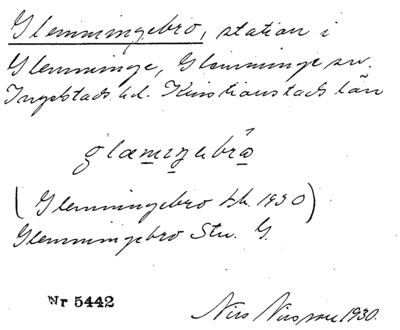 Glemmingebro, station i
Glemminge, Glemminge sn.
Ingelstads hd. Kristianstads län
(Glemmingebro hk. 1930)
Glemmingebro Stn. G.
Nr 5442
Nils Nilsson 1930.